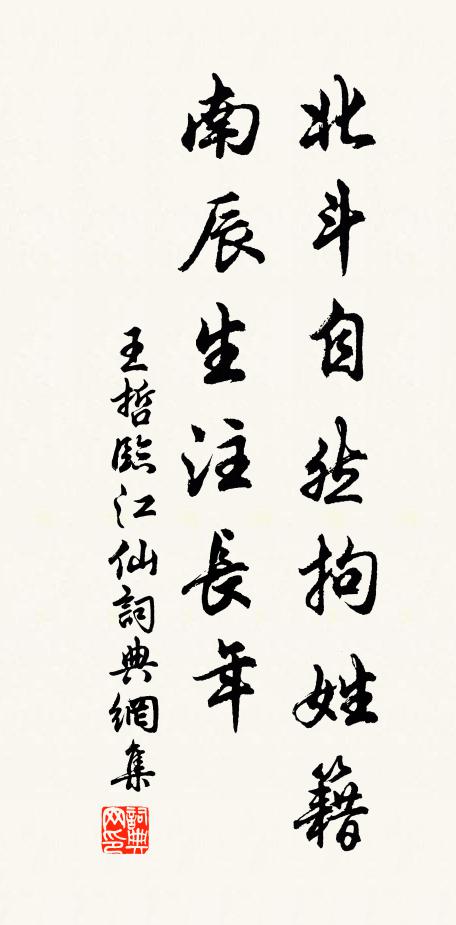 北斗自然拘姓籍
南辰生注長年
王哲臨江仙詞典網集
詞典网印